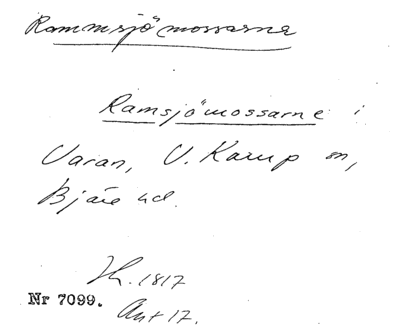 Rammsjömossarne
Ramsjömossarne i
Varan, V. Karup sn,
Bjäre hd.
Jh. 1817
Nr 7099.
Akt 17.